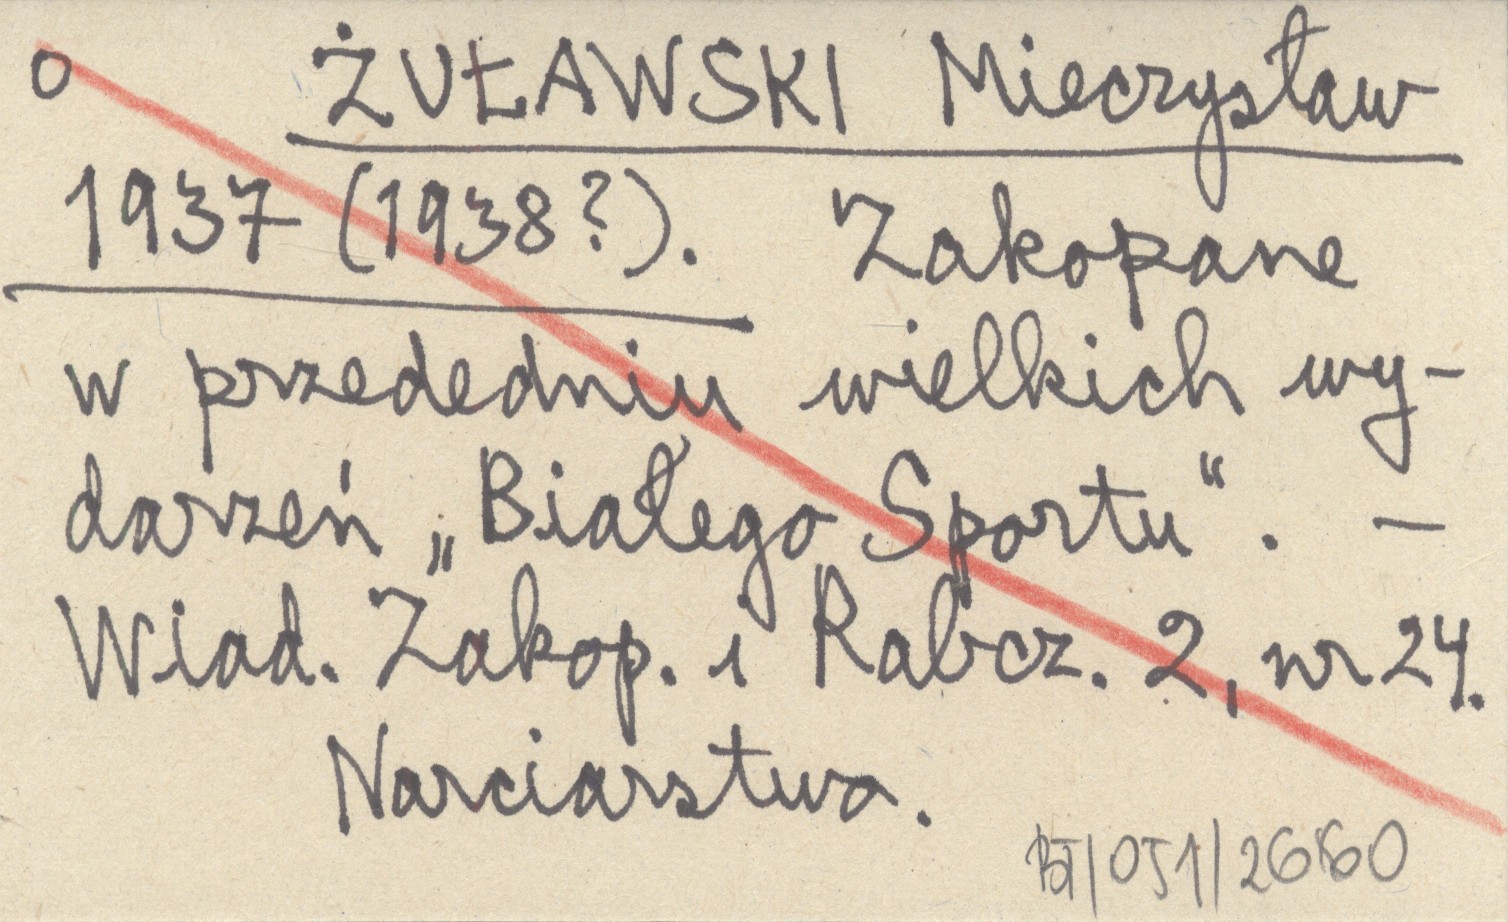 o ŻUŁAWSKI Mieczysław
1937 (1938?). Zakopane
w przededniu wielkich wy-
darzeń „Białego Sportu“. —
Wiad. Zakop. i Rabcz. 2, nr 24.
Narciarstwo.